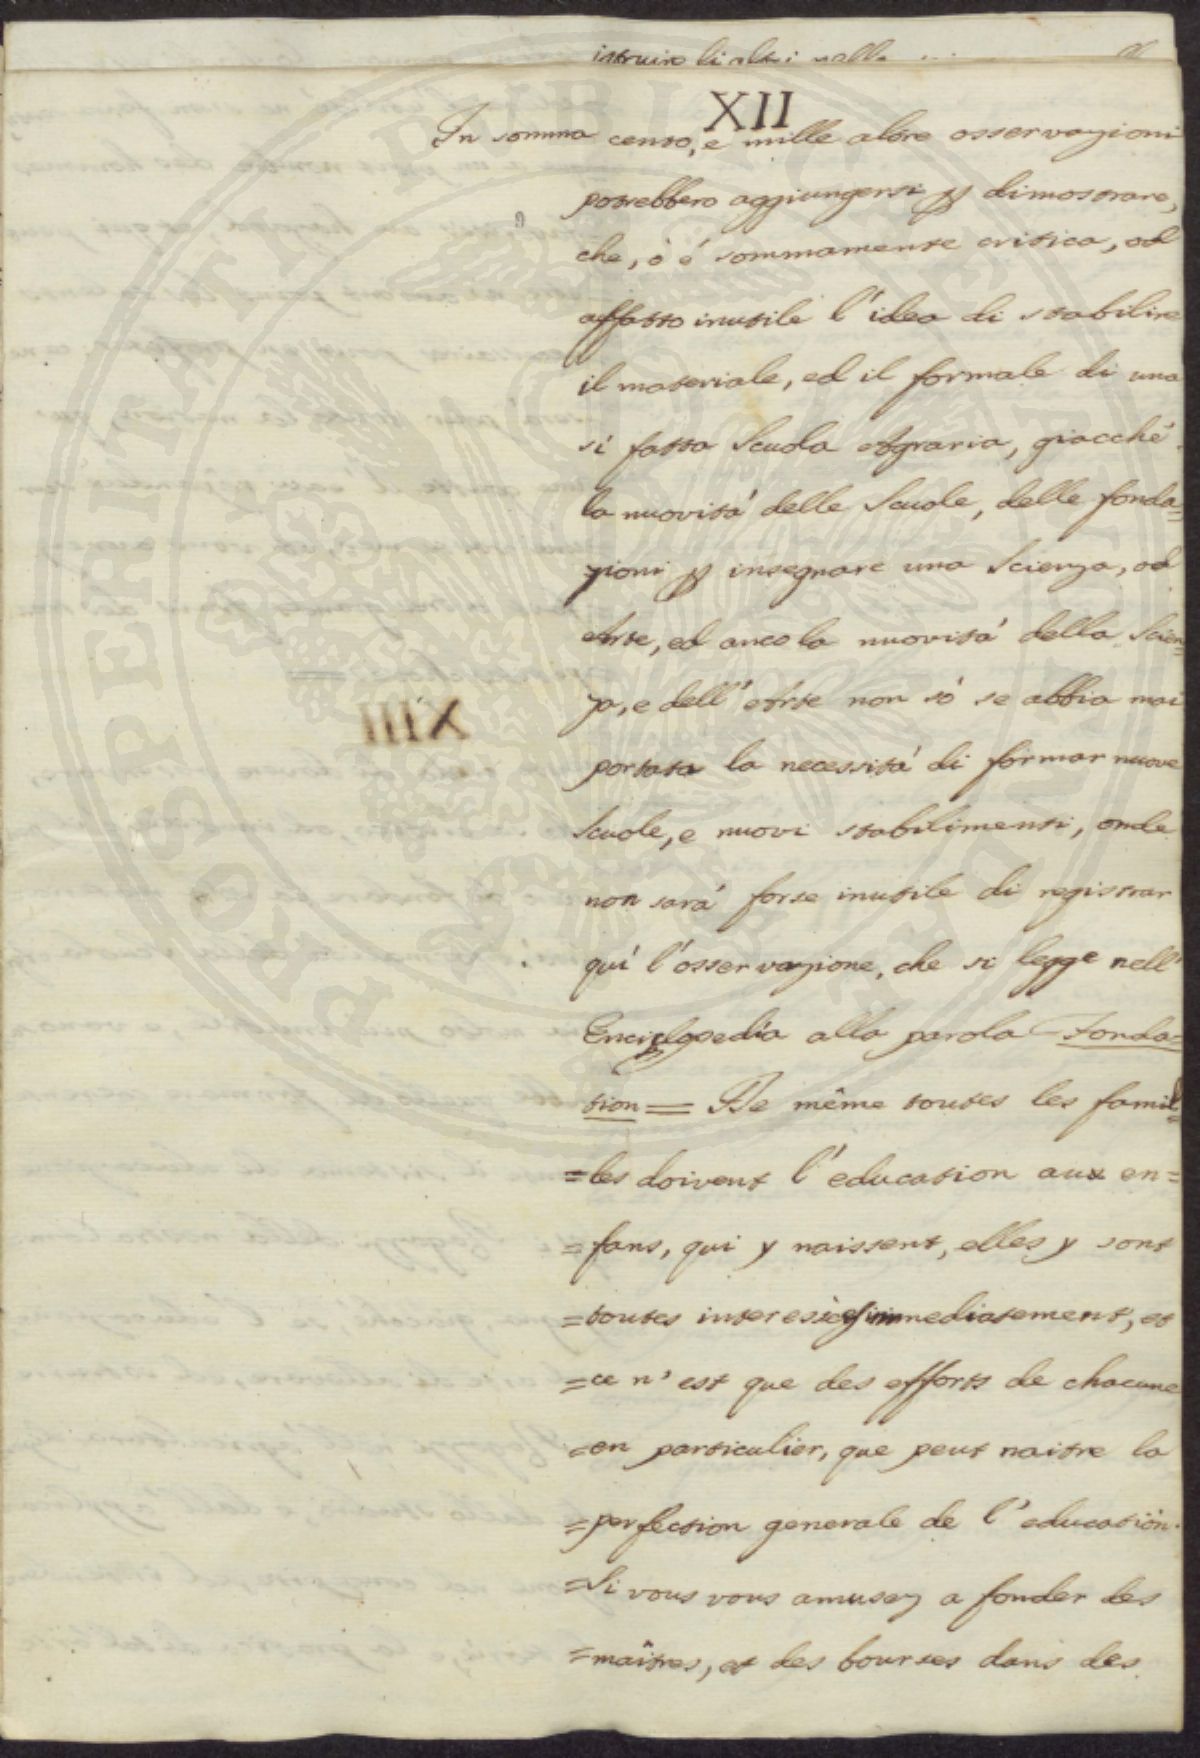 istruire li altri nella
XII
In somma cento, e mille altre osservazioni
potrebbero aggiungersi p dimostrare,
che, ò é sommamente critica, od
affatto inutile l'idea di stabilire
il materiale, ed il formale di una
sì fatta Scuola Agraria, giacché
la nuovità delle Scuole, delle fonda=
zioni p insegnare una Scienza, od
Arte, ed anco la nuovità della Scien=
za, e dell'Arte non sò se abbia mai
portata la necessità di formar nuove
Scuole, e nuovi stabilimenti, onde
non sarà forse inutile di registrar
quì l'osservazione, che si legge nell'
Enciclopedìa alla parola Fonda=
tion = De même toutes les famil=
=les doivent l'education aux en=
=fans, qui y naissent, elles y sont
=toutes interesèes immediatement, et
=ce n'est que des efforts de chacune
=en particulier, que peut naitre la
=perfection generale de l'education.
=Si vous vous amusez a fonder des
=maîtres, et des bourses dans des
XIII
PROSPERITATI PUBLICAE AUGENDAE